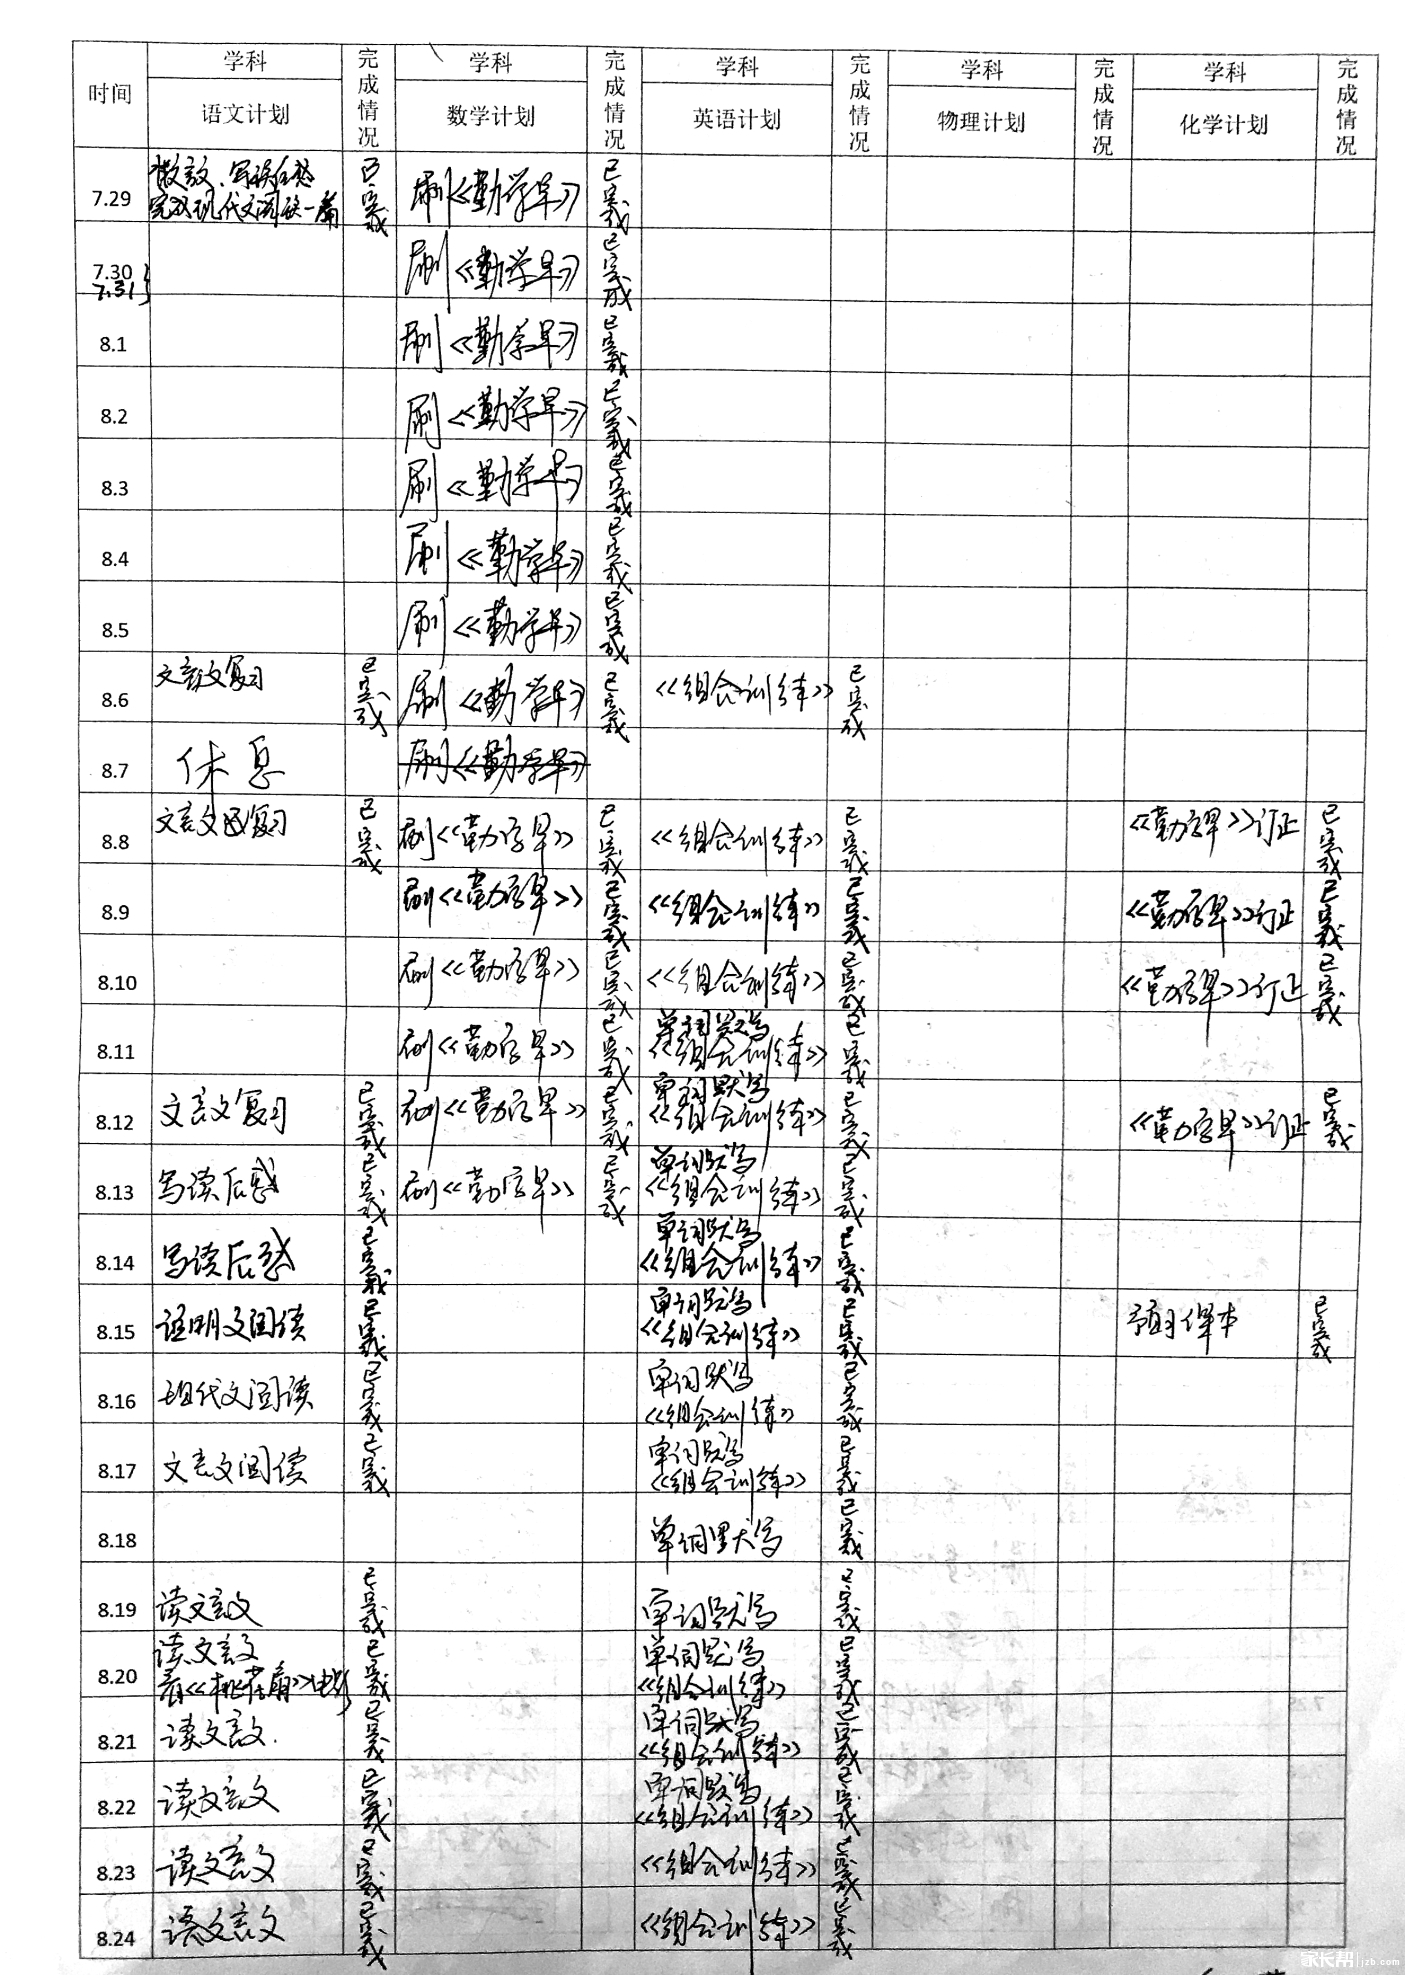 时间 学科 完成情况 学科 完成情况 学科 完成情况 学科 完成情况 学科 完成情况
语文计划 数学计划 英语计划 物理计划 化学计划
7.29 散文、写读后感 已完成 刷《勤学早》 已完成
完成现代文阅读一篇
7.30 刷《勤学早》 已完成
7.31
8.1 刷《勤学早》 已完成
8.2 刷《勤学早》 已完成
8.3 刷《勤学早》 已完成
8.4 刷《勤学早》 已完成
8.5 刷《勤学早》 已完成
8.6 文言文复习 已完成 刷《勤学早》 已完成 《组合训练》 已完成
8.7 休息 刷《勤学早》
8.8 文言文复习 已完成 刷《勤学早》 已完成 《组合训练》 已完成 《勤学早》订正 已完成
8.9 刷《勤学早》 已完成 《组合训练》 已完成 《勤学早》订正 已完成
8.10 刷《勤学早》 已完成 《组合训练》 已完成 《勤学早》订正 已完成
8.11 刷《勤学早》 已完成 单词默写 已完成
《组合训练》
8.12 文言文复习 已完成 刷《勤学早》 已完成 单词默写 已完成 《勤学早》订正 已完成
《组合训练》
8.13 写读后感 已完成 刷《勤学早》 已完成 单词默写 已完成
《组合训练》
8.14 写读后感 已完成 单词默写 已完成
《组合训练》
8.15 说明文阅读 已完成 单词默写 已完成 预习课本 已完成
《组合训练》
8.16 现代文阅读 已完成 单词默写 已完成
《组合训练》
8.17 文言文阅读 已完成 单词默写 已完成
《组合训练》
8.18 单词默写 已完成
8.19 读文言文 已完成 单词默写 已完成
8.20 读文言文 已完成 单词默写 已完成
看《桃花扇》电影 《组合训练》
8.21 读文言文. 已完成 单词默写 已完成
《组合训练》
8.22 读文言文 已完成 单词默写 已完成
《组合训练》
8.23 读文言文 已完成 《组合训练》 已完成
8.24 读文言文 已完成 《组合训练》 已完成
家长帮 jzb.com